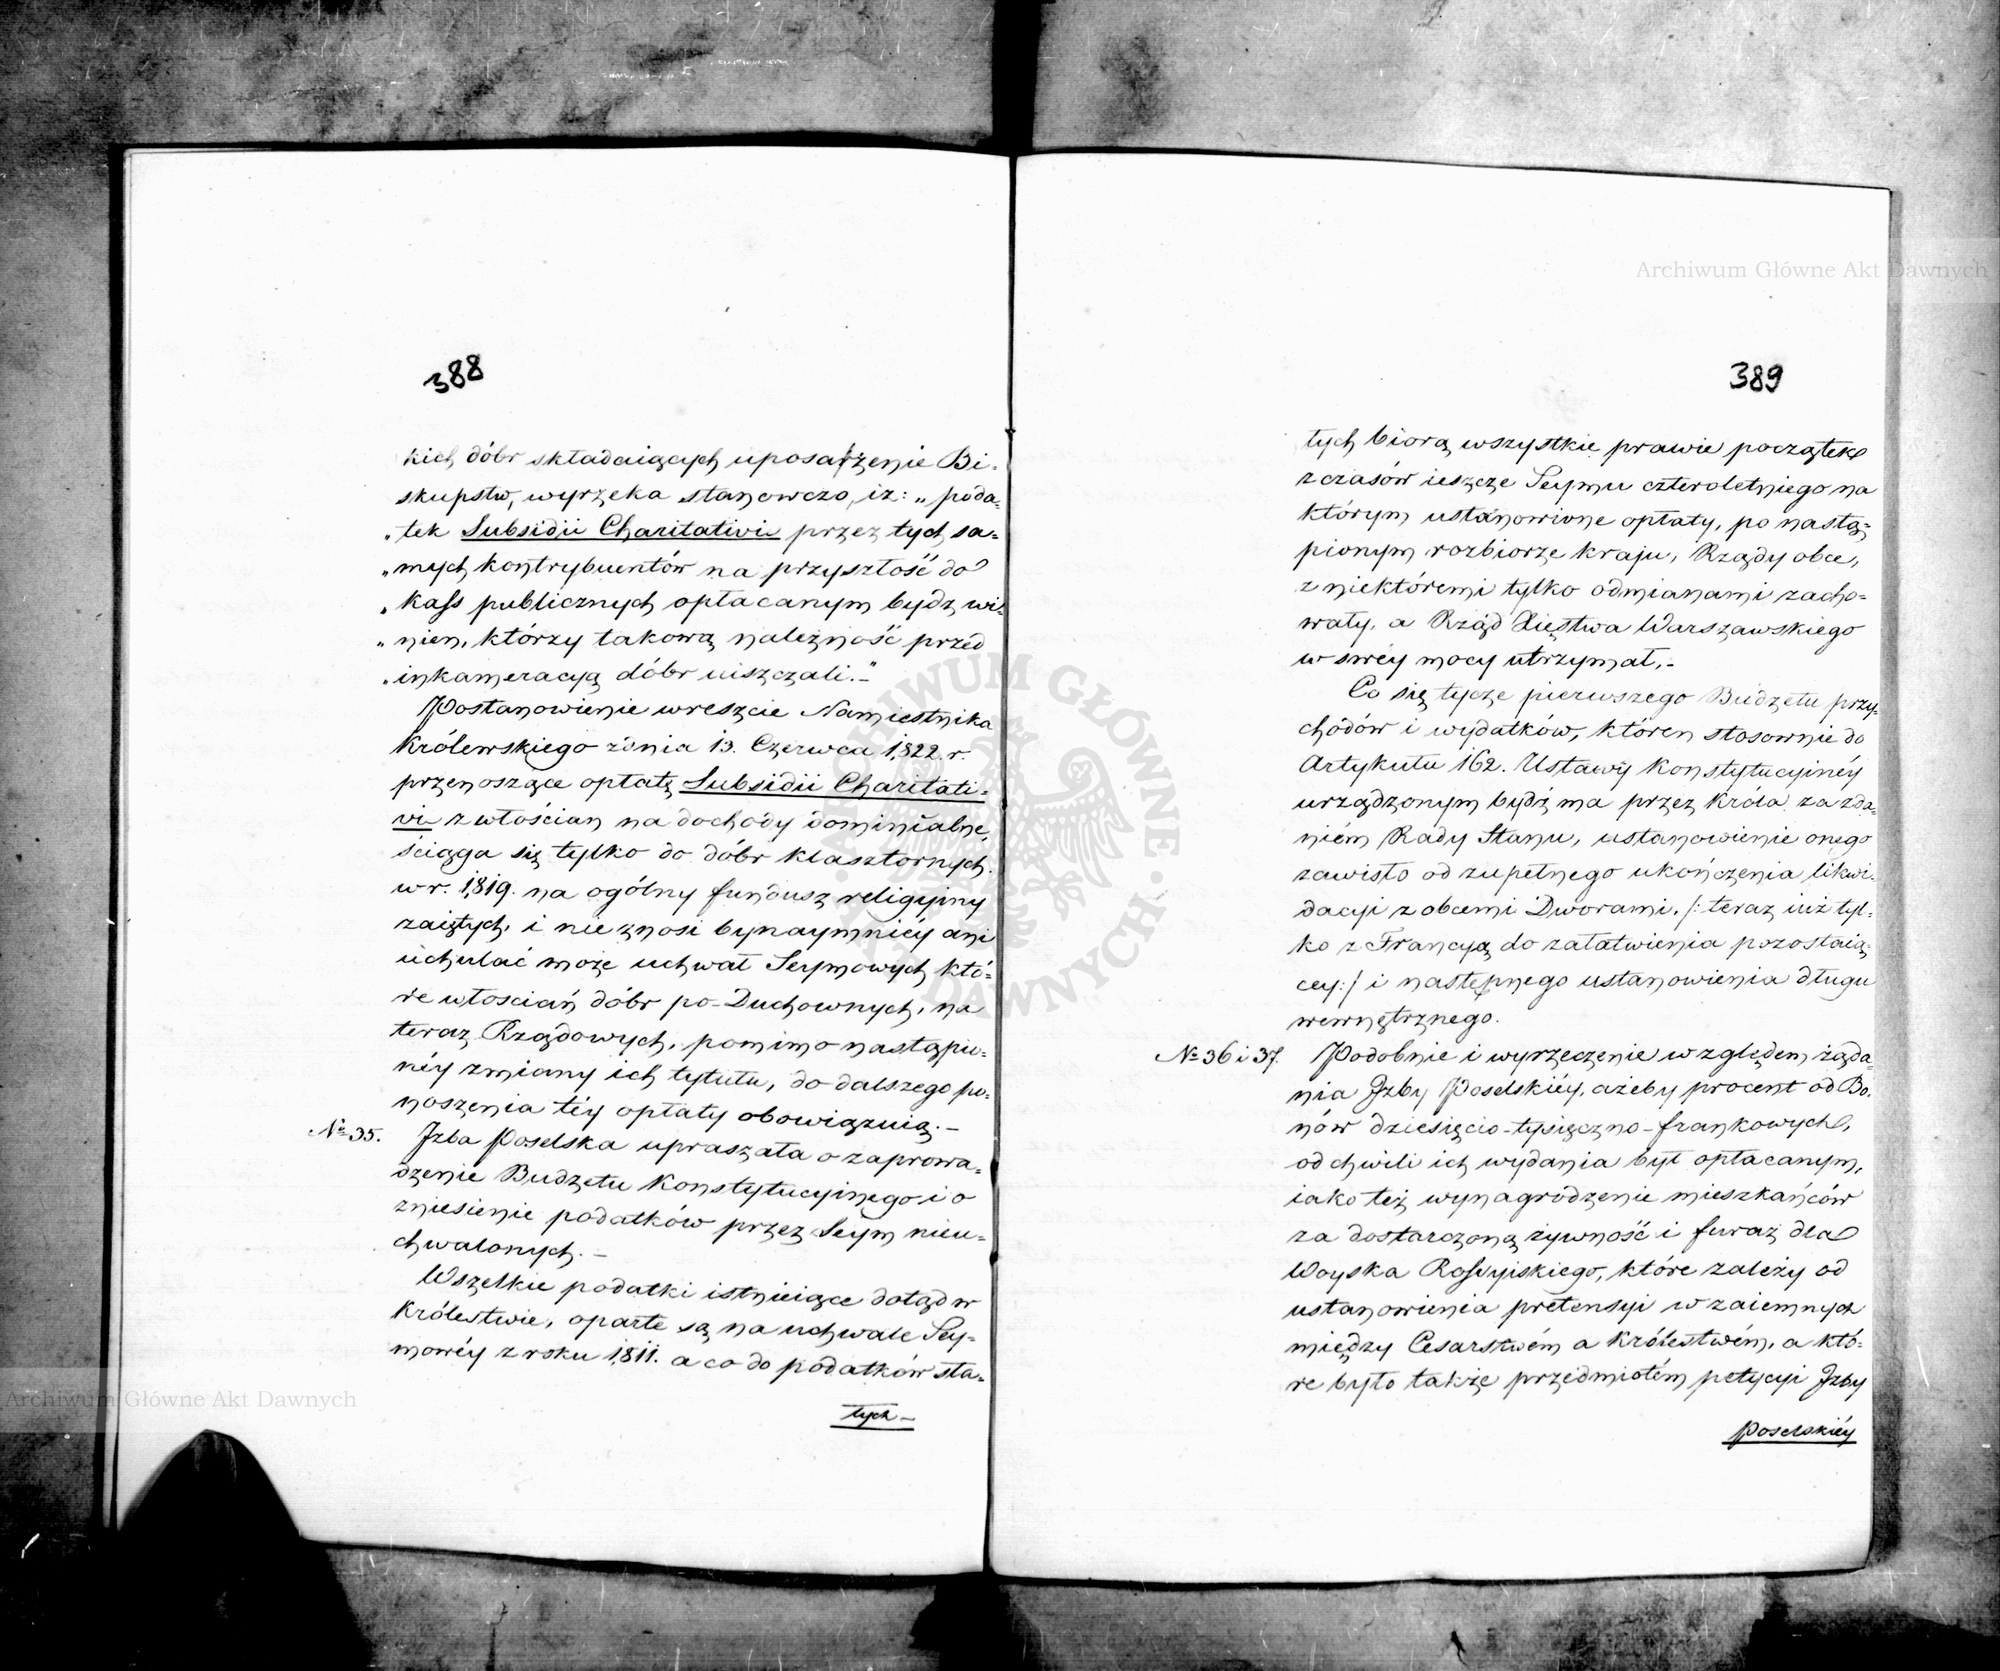 388
kich dóbr składaiących uposarzenie Bi-
skupstw, wyrzeka stanowczo, iż: „poda-
„tek Subsidii Charitativi przez tych sa-
„mych kontrybuentów na przyszłość do
„kass publicznych opłacanym bydź wi-
„nien, którzy takową należność przed
„inkameracyą dóbr uiszczali.”-
Postanowienie wreszcie Namiestnika
Królewskiego z dnia 13. Czerwca 1822. r.
przenoszące opłatę Subsidii Charitati-
vi z włościan na dochody dominialne,
ściąga się tylko do dóbr klasztornych.
w r. 1819. na ogólny fundusz religijny
zaiętych, i nie znosi bynaymniéy ani
uchylać może uchwał Seymowych któ-
re włościan dóbr po-Duchownych, na
teraz Rządowych, pomimo nastąpio-
néy zmiany ich tytułu, do dalszego po-
noszenia téy opłaty obowiązuią.-
No 35. Izba Poselska upraszała o zaprowa-
dzenie Budżetu Konstytucyinego i o
zniesienie podatków przez Seym nieu-
chwalonych.-
Wszelkie podatki istnieiące dotąd w
Królestwie, oparte są na uchwale Sey-
mowéy z roku 1811. a co do podatków sta-
tych-
389
tych biorą wszystkie prawie początek
z czasów ieszcze Seymu czteroletniego na
którym ustanowione opłaty, po nastą-
pionym rozbiorze kraju, Rządy obce,
z niektóremi tylko odmianami zacho-
wały, a Rząd Xięstwa Warszawskiego
w swéy mocy utrzymał.-
Co się tycze pierwszego Budżetu przy-
chodów i wydatków, któren stosownie do
Artykułu 162. Ustawy Konstytucyinéy
urządzonym bydź ma przez Króla za zda-
niém Rady Stanu, ustanowienie onego
zawisło od zupełnego ukończenia likwi-
dacyi z obcemi Dworami, /: teraz iuż tyl-
ko z Francyą do załatwienia pozostaią-
cey:/ i następnego ustanowienia długu
wewnętrznego.
No 36 i 37. Podobnie i wyrzeczenie względem żąda-
nia Izby Poselskiéy, ażeby procent od Bo-
nów dziesięcio-tysięczno-frankowych,
od chwili ich wydania był opłacanym,
iako też wynagrodzenie mieszkańców
za dostarczoną żywność i furaż dla
Woyska Rossyiskiego, które zależy od
ustanowienia pretensyi wzaiemnych
między Cesarstwém a Królestwém, a któ-
re było także przedmiotém petycyi Izby
Poselskiéy
Archiwum Główne Akt Dawnych
Archiwum Główne Akt Dawnych
ARCHIWUM GŁÓWNE AKT DAWNYCH